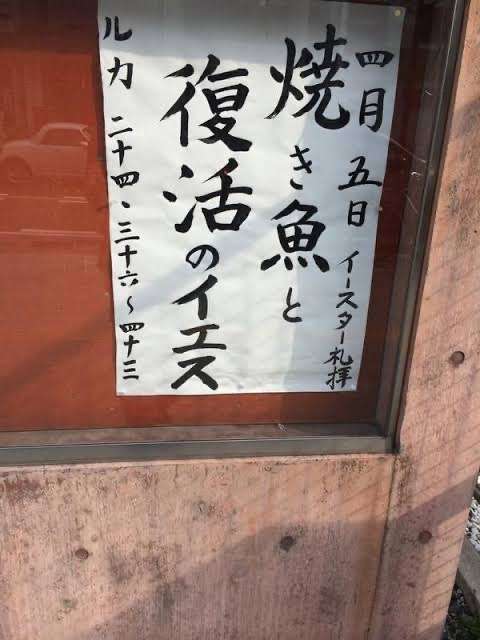 四月五日 イースター礼拝
焼き魚と
復活のイエス
ルカ二十四・三十六～四十三